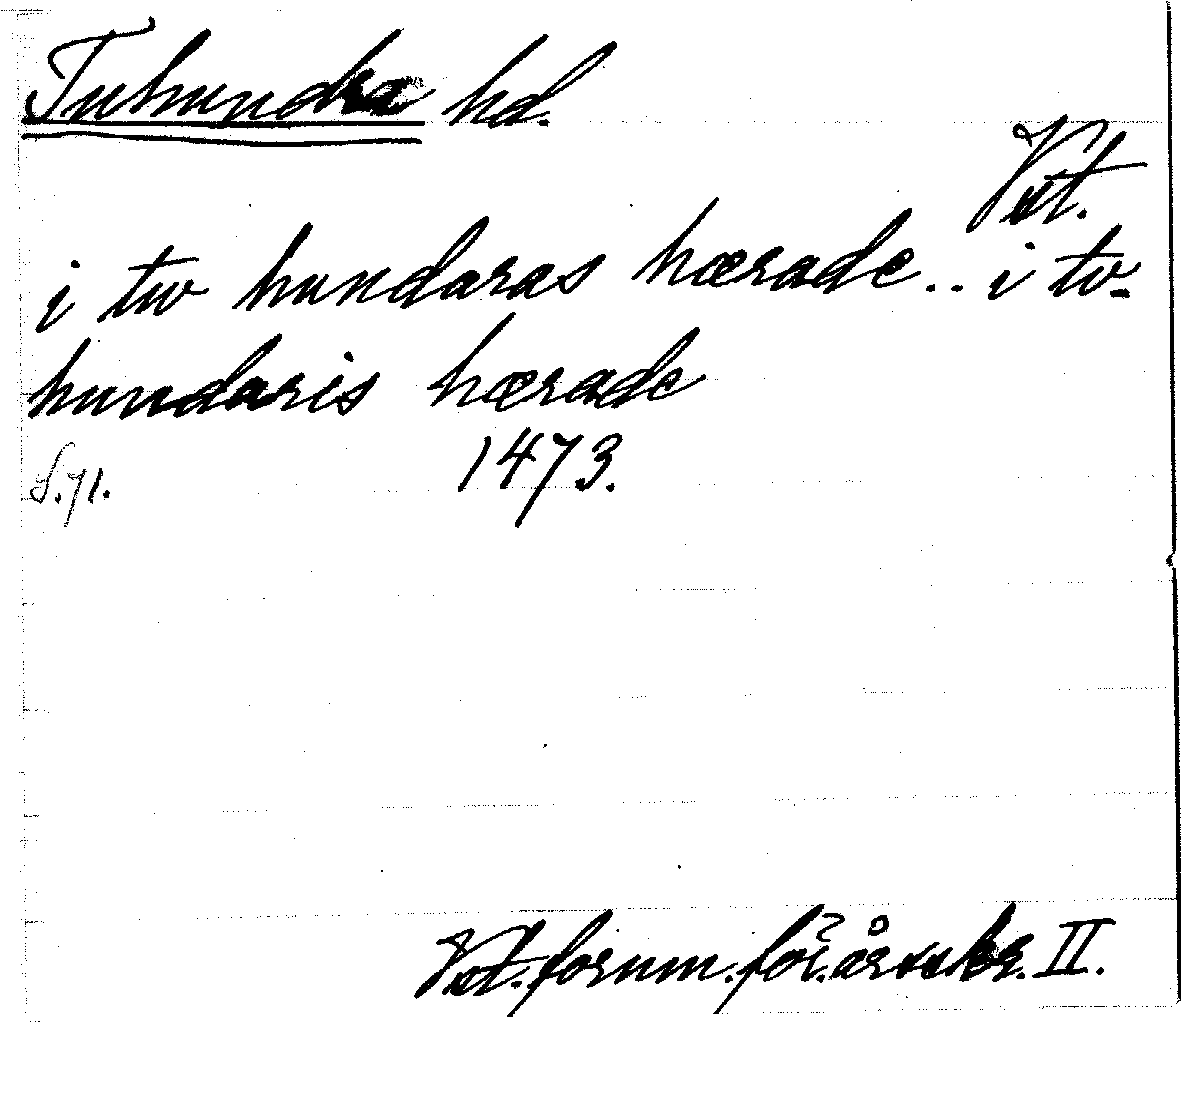 Tuhundra hd.
Vst.
i tw hundaras hærade.. i tv-
hundaris hærade
S. 71. 1473.
Vst. fornm. för. årsskr. II.